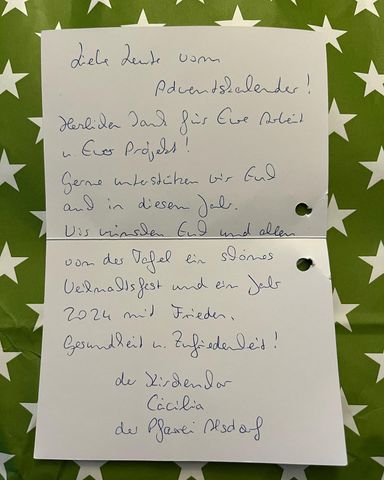 Liebe Leute vom
Adventskalender!
Herzlichen Dank für Eure Arbeit
u. Euer Projekt!
Gerne unterstützen wir Euch
auch in diesem Jahr.
Wir wünschen Euch und allen
von der Tafel ein schönes
Weihnachtsfest und ein Jahr
2024 mit Frieden,
Gesundheit u. Zufriedenheit!
der Kirchenchor
Cäcilia
der Pfarrei Alsdorf